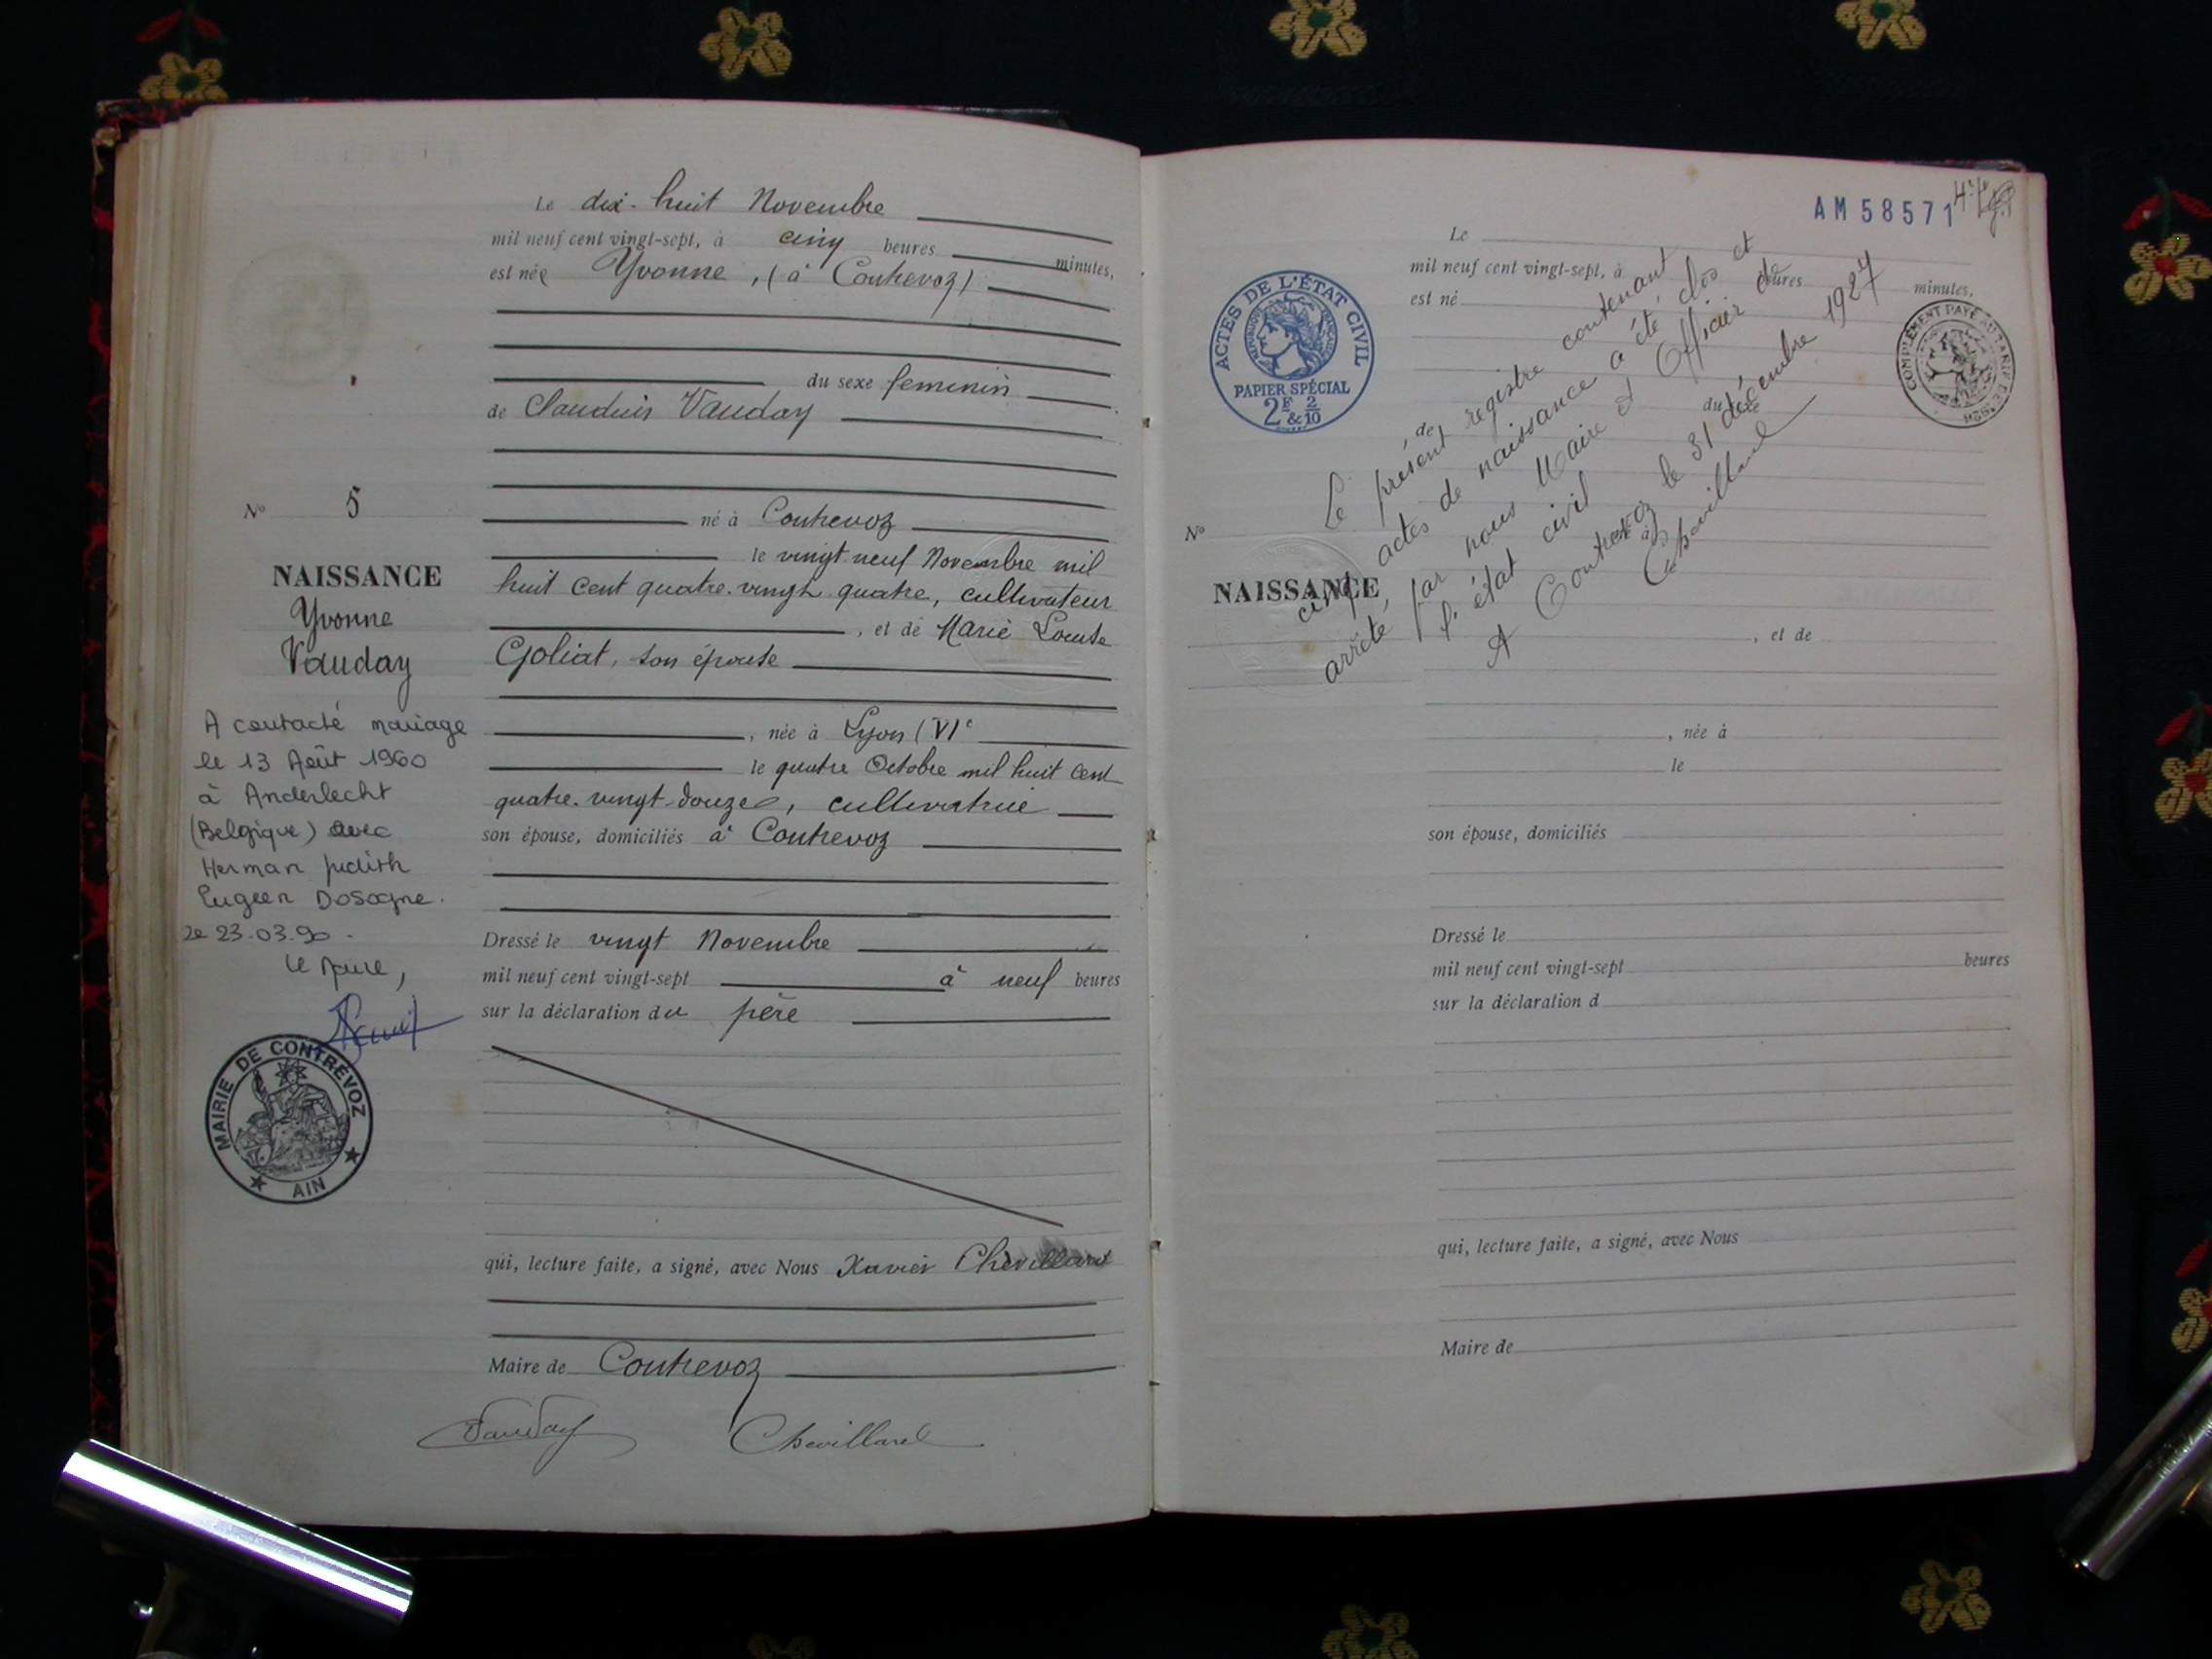 Le dix-huit Novembre
mil neuf cent vingt-sept, à cinq heures minutes,
est née Yvonne, (à Contrevoz)
du sexe feminin
de Claudius Vauday
né à Contrevoz
le vingt neuf Novembre mil
huit cent quatre-vingt quatre, cultivateur
, et de Marie Louise
Goliat, son épouse
, née à Lyon (VIe
le quatre Octobre mil huit cent
quatre-vingt-douze, cultivatrice
son épouse, domiciliés à Contrevoz
Dressé le vingt Novembre
mil neuf cent vingt-sept à neuf heures
sur la déclaration du père
qui, lecture faite, a signé, avec Nous Xavier Chevillard
Maire de Contrevoz
Vauday Chevillard
N° 5
NAISSANCE
Yvonne
Vauday
A contracté mariage
le 13 Août 1960
à Anderlecht
(Belgique) avec
Herman Judith
Eugeen Dosogne.
Le 23.03.90.
Le Maire,
MAIRIE DE CONTREVOZ
AIN
AM 58571
ACTES DE L'ÉTAT CIVIL
RÉPUBLIQUE FRANÇAISE
PAPIER SPÉCIAL
2F & 2/10
COMPLÉMENT PAYÉ AU TARIF DE
Le
mil neuf cent vingt-sept, à heures minutes,
est né
du sexe
de
né à
N°
NAISSANCE
, et de
, née à
le
son épouse, domiciliés
Dressé le
mil neuf cent vingt-sept heures
sur la déclaration d
qui, lecture faite, a signé, avec Nous
Maire de
Le présent registre contenant
cinq actes de naissance a été clos et
arrêté par nous Maire et Officier de
l'état civil
A Contrevoz le 31 décembre 1927
Chevillard